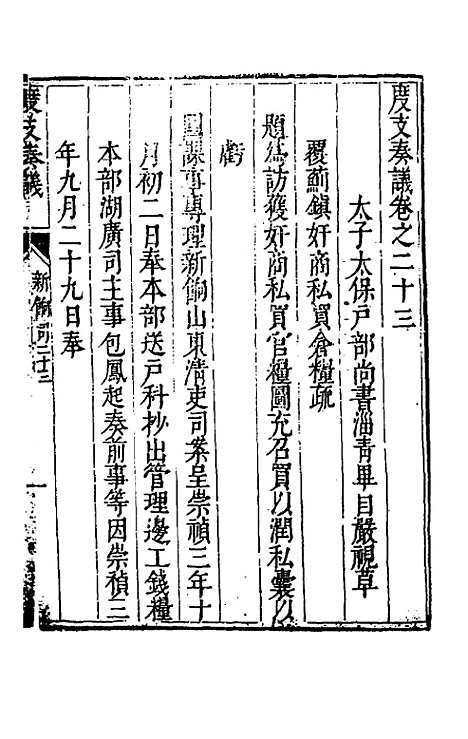 度支奏議卷之二十三
太子太保戶部尚書淄青畢自嚴視草
覆薊鎮奸商私買倉糧疏
題為訪獲奸商私買官糧圖充召買以潤私囊以
虧
國課事專理新餉山東清吏司案呈崇禎三年十
月初二日奉本部送戶科抄出管理邊工錢糧
本部湖廣司主事包鳳起奏前事等因崇禎三
年九月二十九日奉
度支奏議
新餉司二十三
一